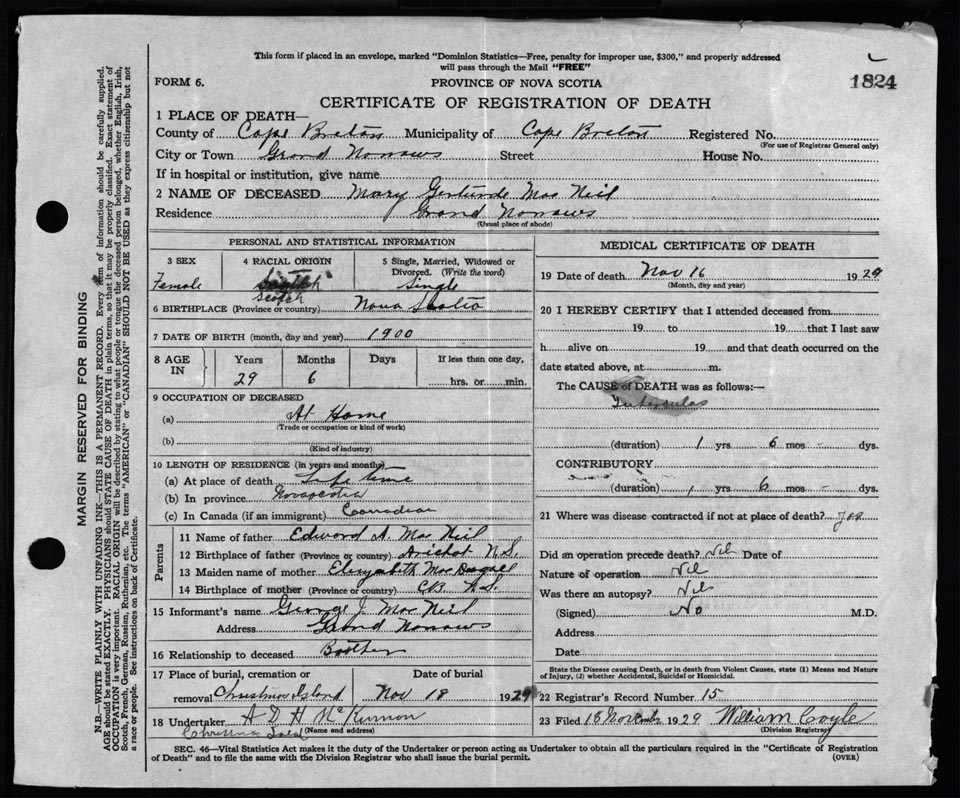 This form if placed in an envelope, marked "Dominion Statistics—Free, penalty for improper use, $300," and properly addressed
will pass through the Mail "FREE"
1824
FORM 6.
PROVINCE OF NOVA SCOTIA
CERTIFICATE OF REGISTRATION OF DEATH
1 PLACE OF DEATH—
County of Cape Breton Municipality of Cape Breton Registered No.
(For use of Registrar General only)
City or Town Grand Narrows Street House No.
If in hospital or institution, give name
2 NAME OF DECEASED Mary Gertrude Mac Neil
Residence Grand Narrows
(Usual place of abode)
PERSONAL AND STATISTICAL INFORMATION
3 SEX
Female
4 RACIAL ORIGIN
Scotch
5 Single, Married, Widowed or
Divorced. (Write the word)
Single
6 BIRTHPLACE (Province or country) Nova Scotia
7 DATE OF BIRTH (month, day and year) 1900
8 AGE IN
Years Months Days If less than one day,
29 6 hrs. or min.
9 OCCUPATION OF DECEASED
(a) At Home
(Trade or occupation or kind of work)
(b)
(Kind of industry)
10 LENGTH OF RESIDENCE (in years and months)
(a) At place of death Life time
(b) In province Novascotia
(c) In Canada (if an immigrant) Canadian
Parents
11 Name of father Edward A. Mac Neil
12 Birthplace of father (Province or country) Arichat N.S.
13 Maiden name of mother Elizabeth Mac Dougall
14 Birthplace of mother (Province or country) C.B. N.S.
15 Informant's name George J. Mac Neil
Address Grand Narrows
16 Relationship to deceased Brother
17 Place of burial, cremation or Date of burial
removal Christmas Island Nov 18 1929
18 Undertaker A D H McKinnon
(Name and address)
MEDICAL CERTIFICATE OF DEATH
19 Date of death Nov 16 1929
(Month, day and year)
20 I HEREBY CERTIFY that I attended deceased from
19 to 19 that I last saw
h alive on 19 and that death occurred on the
date stated above, at m.
The CAUSE of DEATH was as follows:—
(duration) 1 yrs 6 mos - dys.
CONTRIBUTORY
(duration) 1 yrs 6 mos - dys.
21 Where was disease contracted if not at place of death? yes
Did an operation precede death? Nil Date of
Nature of operation Nil
Was there an autopsy? Nil
(Signed) No M.D.
Address
Date
State the Disease causing Death, or in death from Violent Causes, state (1) Means and Nature
of Injury, (2) whether Accidental, Suicidal or Homicidal.
22 Registrar's Record Number 15
23 Filed 18 November 1929 William Coyle
(Division Registrar)
SEC. 46—Vital Statistics Act makes it the duty of the Undertaker or person acting as Undertaker to obtain all the particulars required in the "Certificate of Registration
of Death" and to file the same with the Division Registrar who shall issue the burial permit.
(OVER)
MARGIN RESERVED FOR BINDING
N.B.—WRITE PLAINLY WITH UNFADING INK—THIS IS A PERMANENT RECORD. Every item of information should be carefully supplied.
AGE should be stated EXACTLY. PHYSICIANS should STATE CAUSE OF DEATH in plain terms, so that it may be properly classified. Exact statement of
OCCUPATION is very important. RACIAL ORIGIN will be described by stating to what people or tongue the deceased person belonged, whether English, Irish,
Scotch, French, German, Russian, Ruthenian, etc. The terms "AMERICAN" or "CANADIAN" SHOULD NOT BE USED as they express citizenship but not
a race or people. See instructions on back of Certificate.